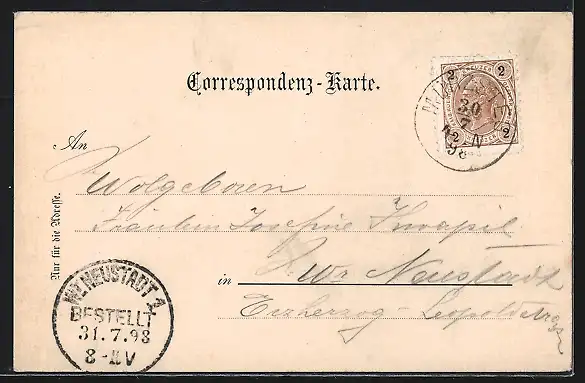 Correspondenz-Karte.
2 KREUZER 2
2 2
30
7
98
An
Wolgeboren
Fräulein Josefine Knapil
in Wr Neustadt
Erzherzog-Leopoldstrasse
Nur für die Adresse.
WR. NEUSTADT 1.
BESTELLT
31.7.98
8-11V